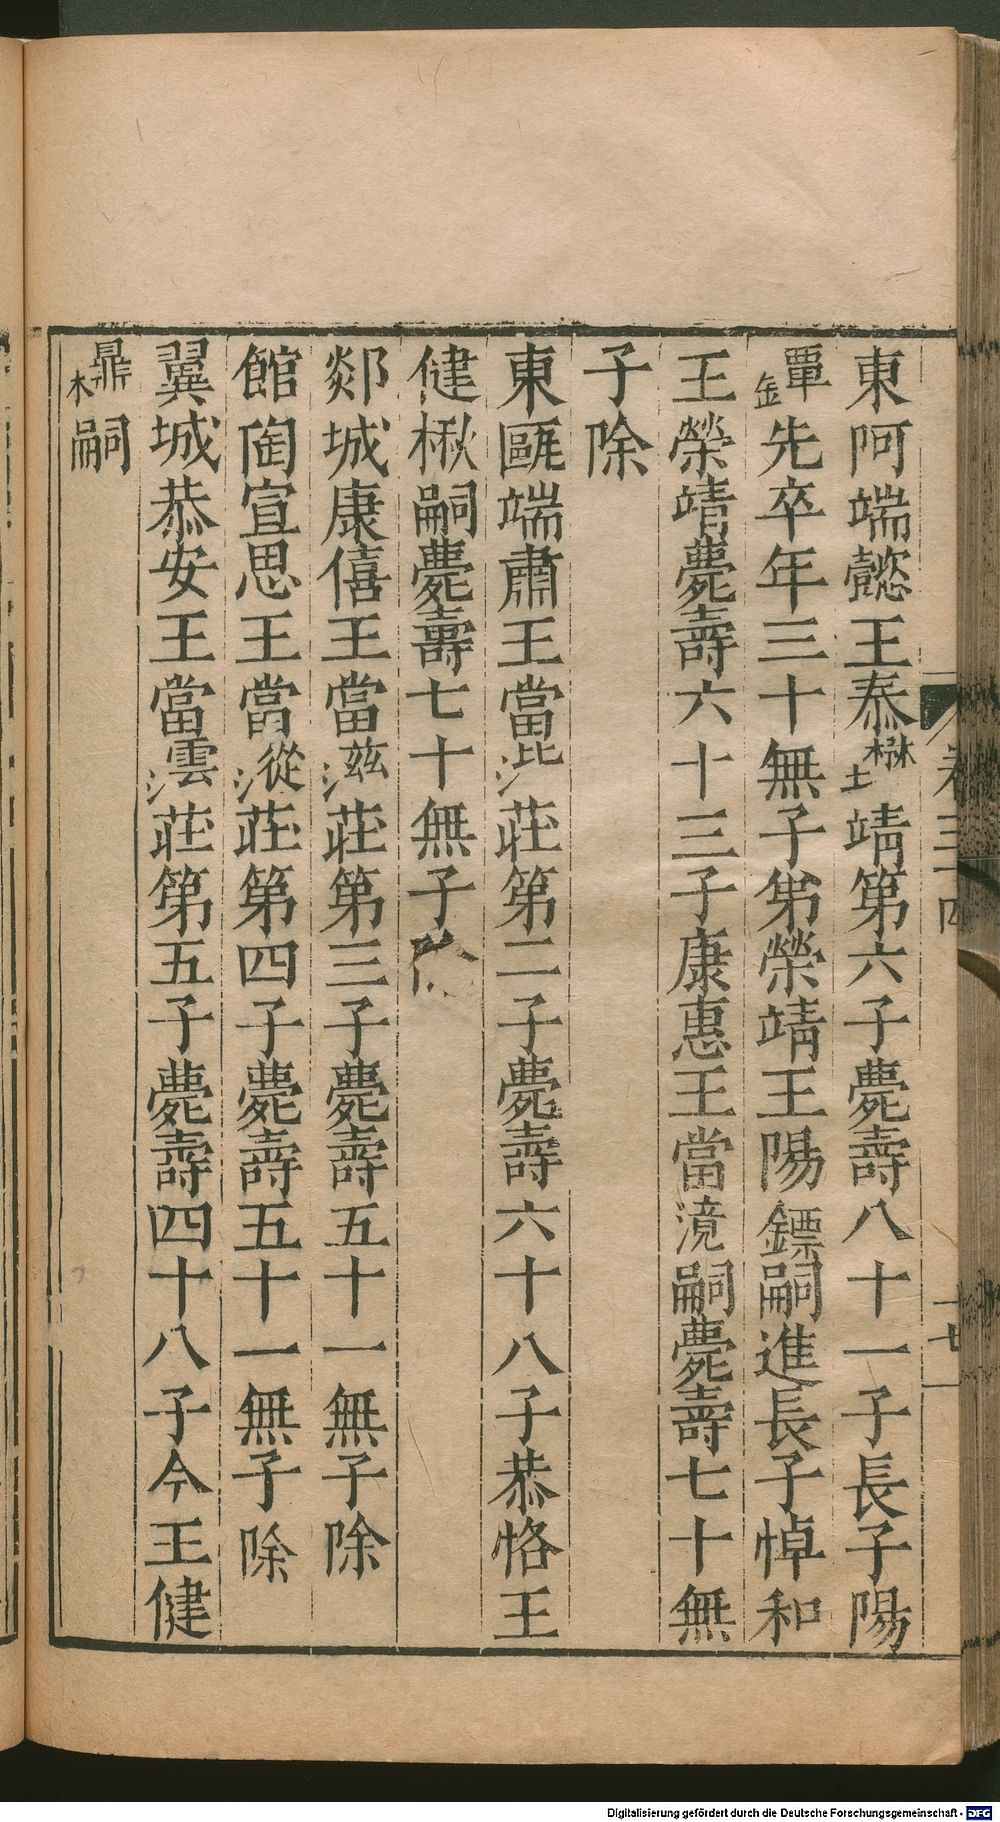 卷三
十七
東阿端懿王泰土靖第六子薨壽八十一子長子陽
鐔先卒年三十無子弟榮靖王陽鏢嗣進長子悼和
王榮靖薨壽六十三子康惠王當滰嗣薨壽七十無
子除
東甌端肅王當莊第二子薨壽六十八子恭恪王
健楸嗣薨壽七十無子
郯城康僖王當滋莊第三子薨壽五十一無子除
館陶宣思王當漎莊第四子薨壽五十一無子除
翼城恭安王當澐莊第五子薨壽四十八子今王健
木鼎嗣
Digitalisierung gefördert durch die Deutsche Forschungsgemeinschaft - DFG